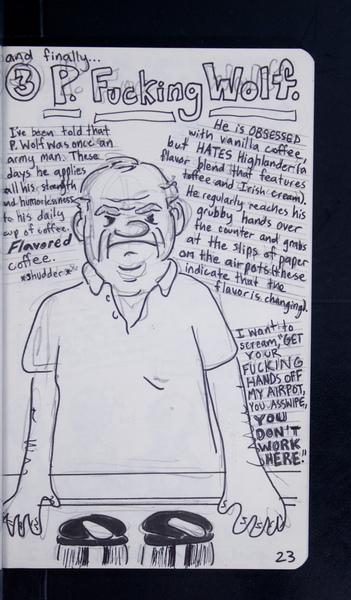 and finally...
③ P. Fucking Wolf.
I've been told that
P. Wolf was once an
army man. These
days he applies
all his strength
and humorlessness
to his daily
cup of coffee.
Flavored
coffee.
*shudder*
He is OBSESSED
with vanilla coffee,
but HATES Highlander (a
flavor blend that features
toffee and Irish cream).
He regularly reaches his
grubby hands over
the counter and grabs
at the slips of paper
on the airpots (these
indicate that the
flavor is changing).
I want to
scream, "GET
YOUR
FUCKING
HANDS OFF
MY AIRPOT,
YOU ASSWIPE,
YOU
DON'T
WORK
HERE."
23